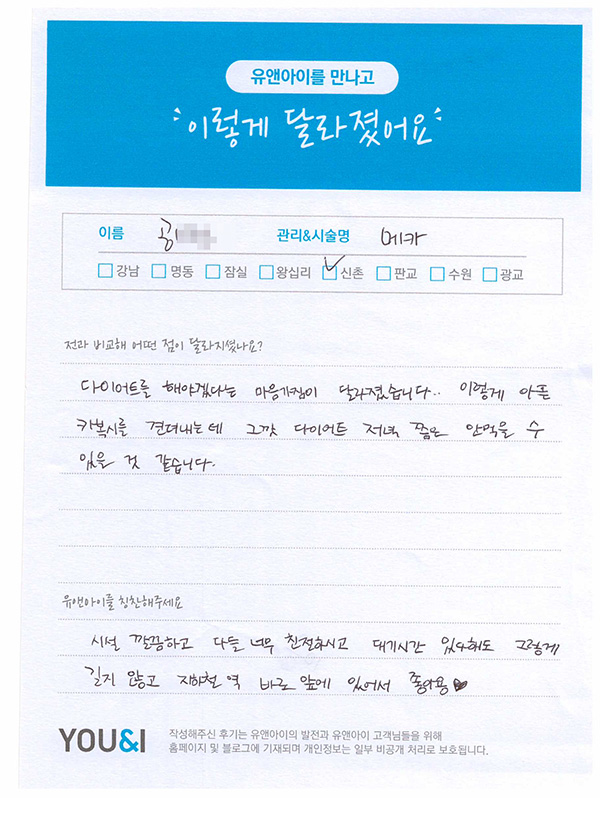 유앤아이를 만나고
이렇게 달라졌어요
이름 공 관리&시술명 메카
강남 명동 잠실 왕십리 신촌 판교 수원 광교
전과 비교해 어떤 점이 달라지셨나요?
다이어트를 해야겠다는 마음가짐이 달라졌습니다.. 이렇게 아픈
카복시를 견뎌내는데 그깟 다이어트 저녁 쯤은 안먹을 수
있을 것 같습니다.
유앤아이를 칭찬해주세요
시설 깔끔하고 다들 너무 친절하시고 대기시간 있다해도 그렇게
길지 않고 지하철 역 바로 앞에 있어서 좋아용
YOU&I 작성해주신 후기는 유앤아이의 발전과 유앤아이 고객님들을 위해
홈페이지 및 블로그에 기재되며 개인정보는 일부 비공개 처리로 보호됩니다.